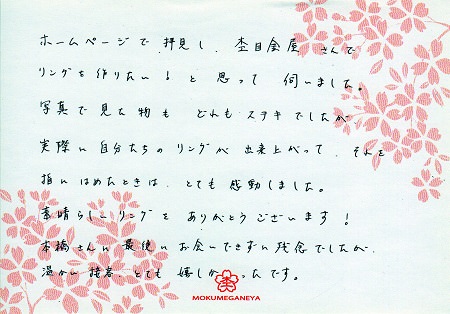 ホームページで拝見し、杢目金屋さんで
リングを作りたい!と思って伺いました。
写真で見た物もどれもステキでしたが
実際に自分たちのリングが出来上がって、それを
指にはめたときは、とても感動しました。
素晴らしいリングをありがとうございます!
本橋さんに最後にお会いできずに残念でしたが、
温かい接客、とても嬉しかったです。
MOKUMEGANEYA